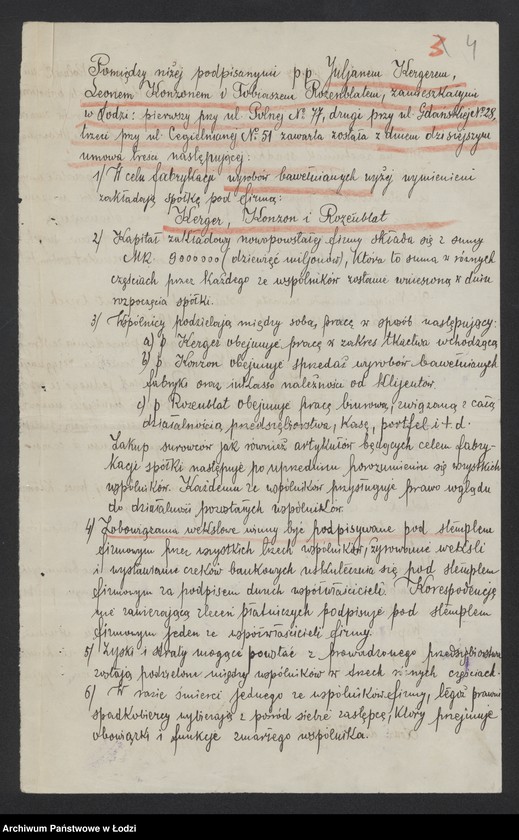 3 4
Pomiędzy niżej podpisanymi p.p. Juljanem Kergerem,
Leonem Konzonem i Tobiaszem Rozenblatem, zamieszkałymi
w Łodzi: pierwszy przy ul. Polnej № 77, drugi przy ul. Gdańskiej № 28,
trzeci przy ul. Cegielnianej № 51 zawarta została z dniem dzisiejszym
umowa treści następującej:
1) W celu fabrykacji wyrobów bawełnianych wyżej wymienieni
zakładają spółkę pod firmą:
Kerger, Konzon i Rozenblat
2) Kapitał zakładowy nowopowstałej firmy składa się z sumy
Mk. 9000000 (dziewięć miljonów), która to suma w równych
częściach przez każdego ze wspólników zostanie wniesioną w dniu
rozpoczęcia spółki.
3) Wspólnicy podzielają między sobą pracę w sposób następujący:
a) p Kerger obejmuje pracę w zakres tkactwa wchodzącą
b) p Konzon obejmuje sprzedaż wyrobów bawełnianych
fabryki oraz inkaso należności od klijentów.
c) p Rozenblat obejmuje pracę biurową, związaną z całą
działalnością przedsiębiorstwa, kasę, portfel i t. d.
Zakup surowców jak również artykułów będących celem fabry-
kacji spółki następuje po uprzedniem porozumieniu się wszystkich
wspólników. Każdemu ze wspólników przysługuje prawo wglądu
do działalności pozostałych wspólników.
4) Zobowiązania wekslowe winny być podpisywane pod stemplem
firmowym przez wszystkich trzech wspólników, żyrowanie weksli
i wystawianie czeków bankowych uskutecznia się pod stemplem
firmowym za podpisem dwuch współwłaścicieli. Korespondencję
nie zawierającą zleceń płatniczych podpisuje pod stemplem
firmowym jeden ze współwłaścicieli firmy.
5) Zyski i straty mogące powstać z prowadzonego przedsiębiorstwa
zostają podzielone między wspólników w trzech równych częściach.
6) W razie śmierci jednego ze wspólników firmy, legalni prawni
spadkobiercy wybierają z pośród siebie zastępcę, który przejmuje
obowiązki i funkcje zmarłego wspólnika.
Archiwum Państwowe w Łodzi